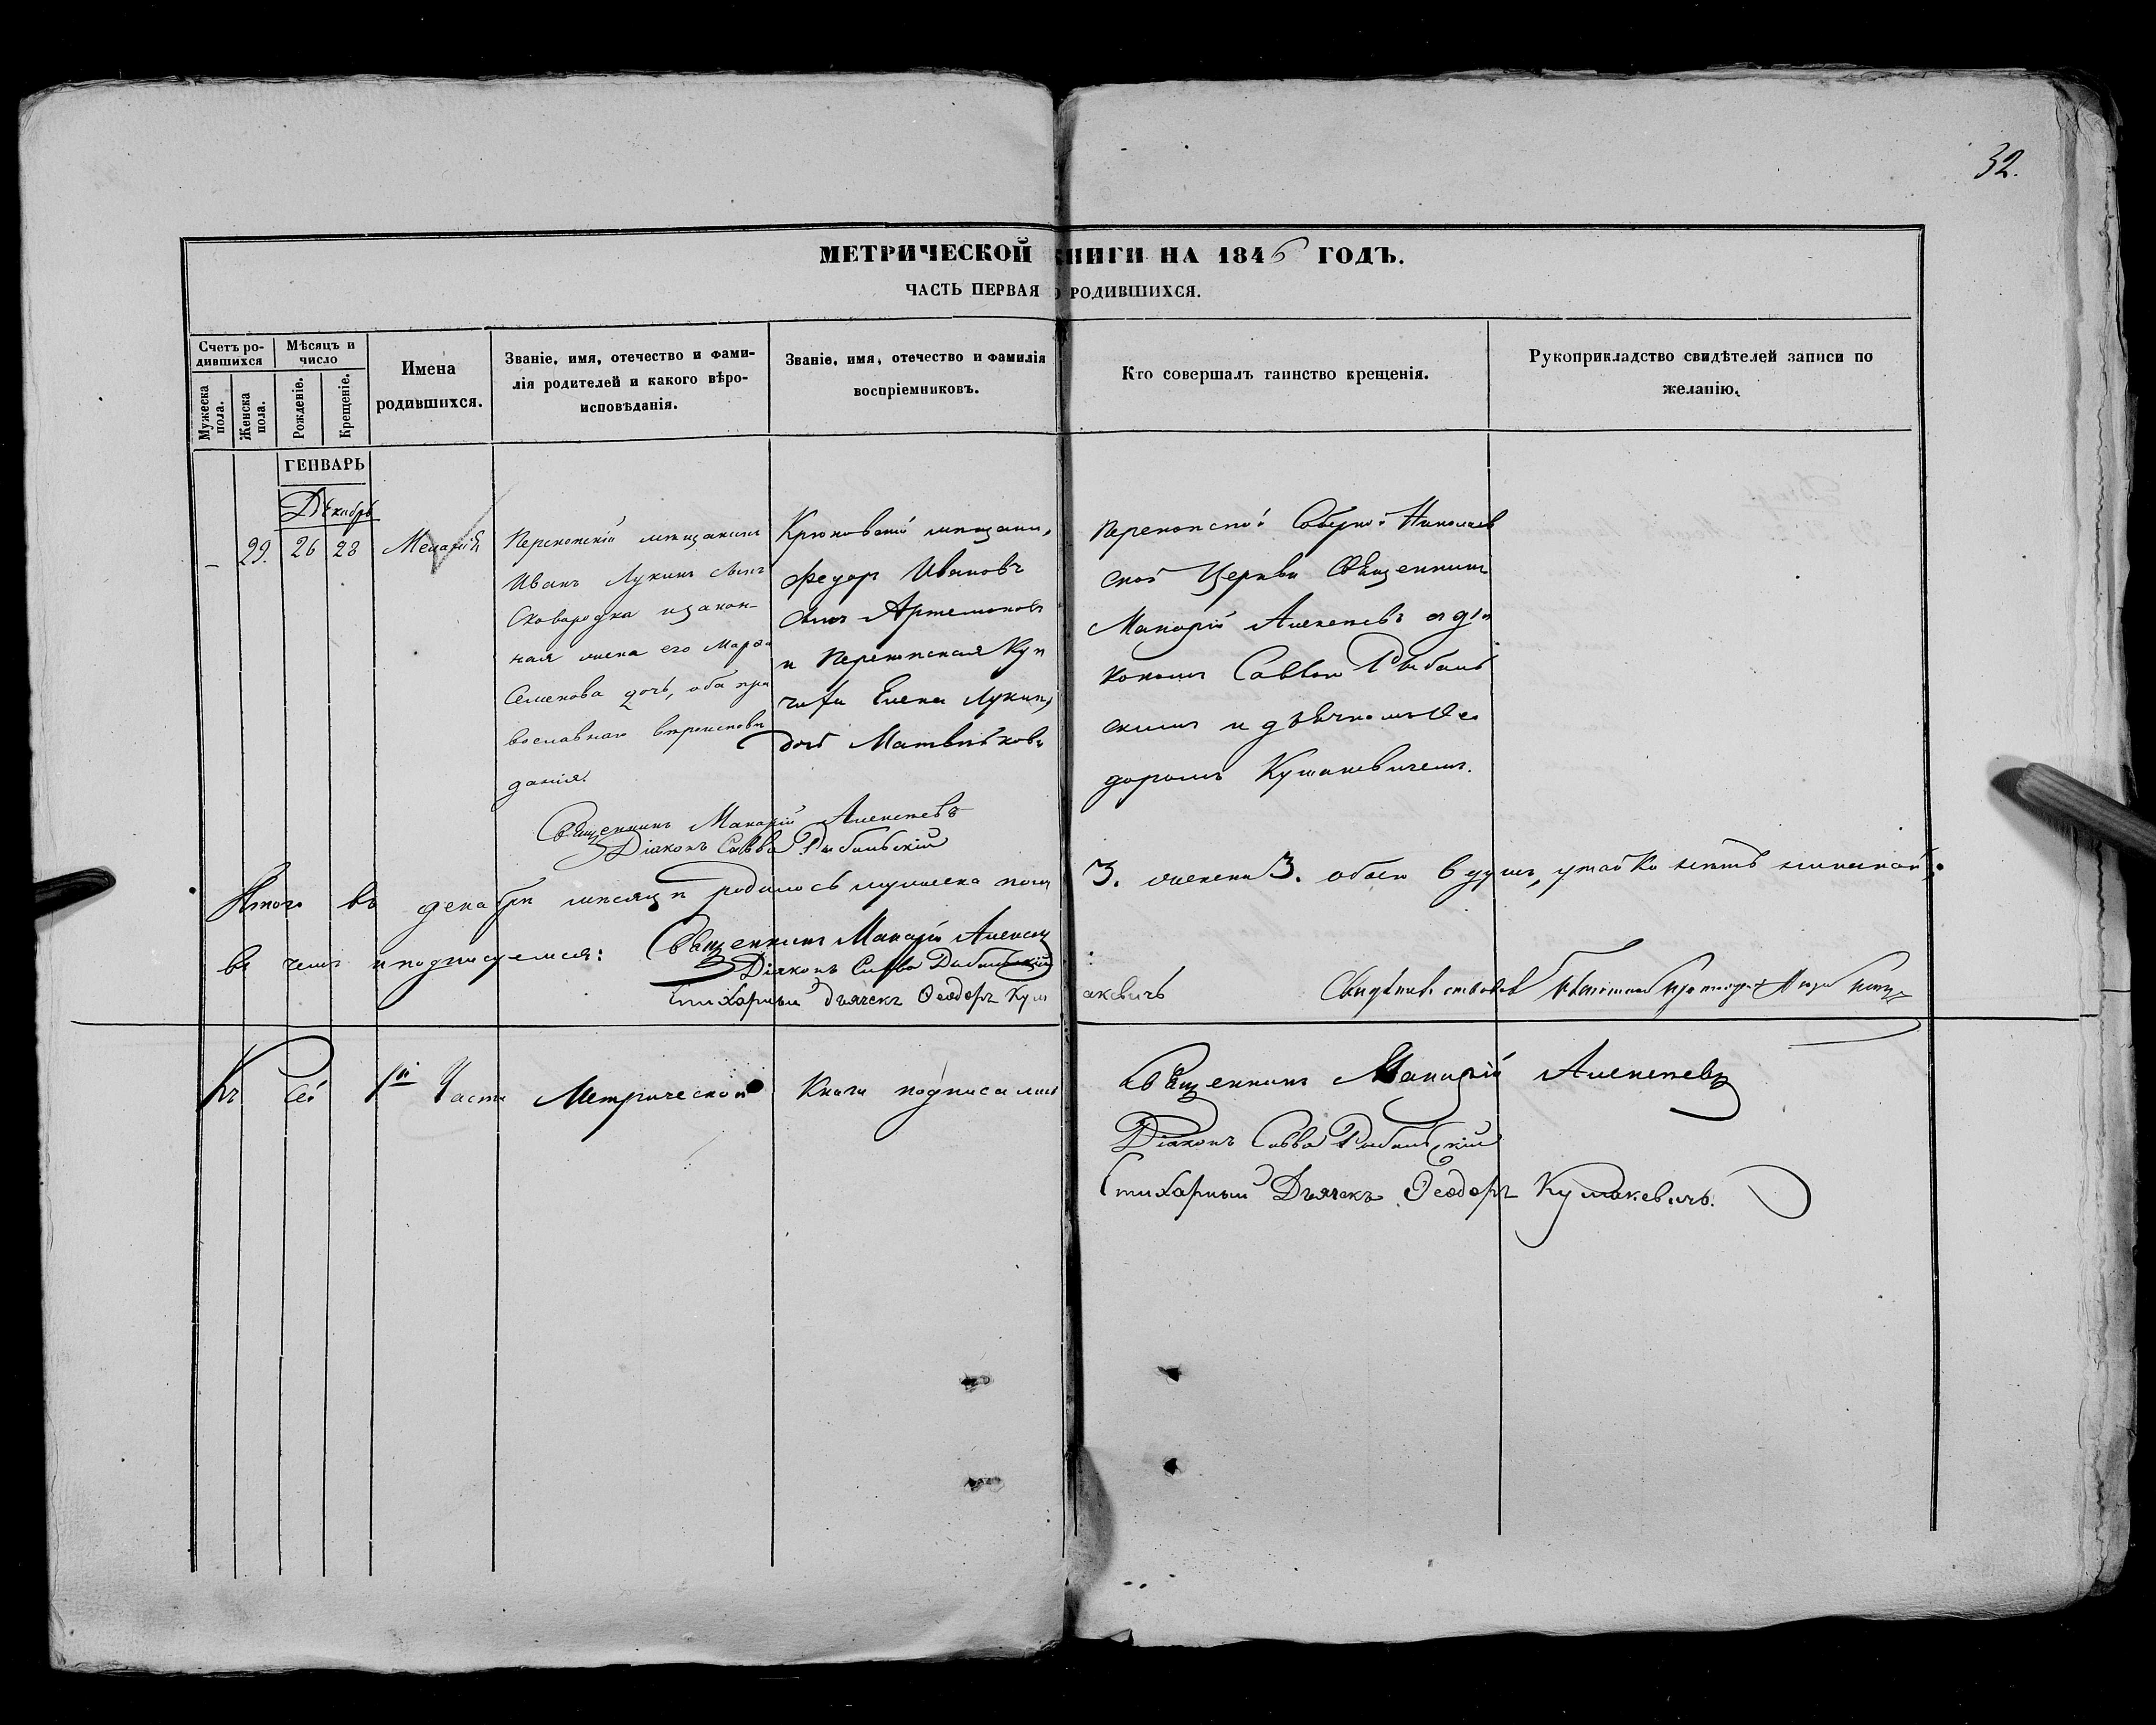 32.
МЕТРИЧЕСКОЙ КНИГИ НА 1846 ГОДЪ.
ЧАСТЬ ПЕРВАЯ О РОДИВШИХСЯ.
Счетъ ро-
дившихся
Мужеска
пола.
Женска
пола.
Мѣсяцъ и
число
Рожденіе.
Крещеніе.
Имена
родившихся.
Званіе, имя, отечество и фами-
лія родителей и какого вѣро-
исповѣданія.
Званіе, имя, отечество и фамилія
воспріемниковъ.
Кто совершалъ таинство крещенія.
Рукоприкладство свидѣтелей записи по
желанію.
ГЕНВАРЬ
Декабрь
– 29. 26 28
Меланія
Перекопскій мѣщанинъ
Иванъ Лукинъ сынъ
Сковородка и закон-
ная жена его Марфа
Семенова дочь, оба пра
вославнаго вѣроисповѣ
данія.
Крюковскій мѣщани,
Федоръ Ивановъ
сынъ Артемоновъ
и Перекопская Куп
чиха Елена Лукин,
дочь
Перекопской Соборной Николаев
ской Церкви Священникъ
Макарій Алексѣевъ съ діа
кономъ Саввою Рыбаль
скимъ и дьячкомъ Ѳео
доромъ Кушакевичемъ.
Священникъ Макарій Алексѣевъ
Діаконъ Савва Рыбальскій
Итого въ декабрѣ мѣсяцѣ родилось мужеска пола 3. женска 3. обоего 6 душъ,
въ чемъ и подписуемся: Священникъ Макарій Алексѣев
Діаконъ Савва Рыбальскій
Стихарный дьячекъ Ѳеодоръ Кушакевичъ
Свидѣтельствовалъ
Къ сей 1й Части Метрической Книги подписались
Священникъ Макарій Алексѣевъ
Діаконъ Савва Рыбальскій
Стихарный Дьячекъ Ѳеодоръ Кушакевичъ.